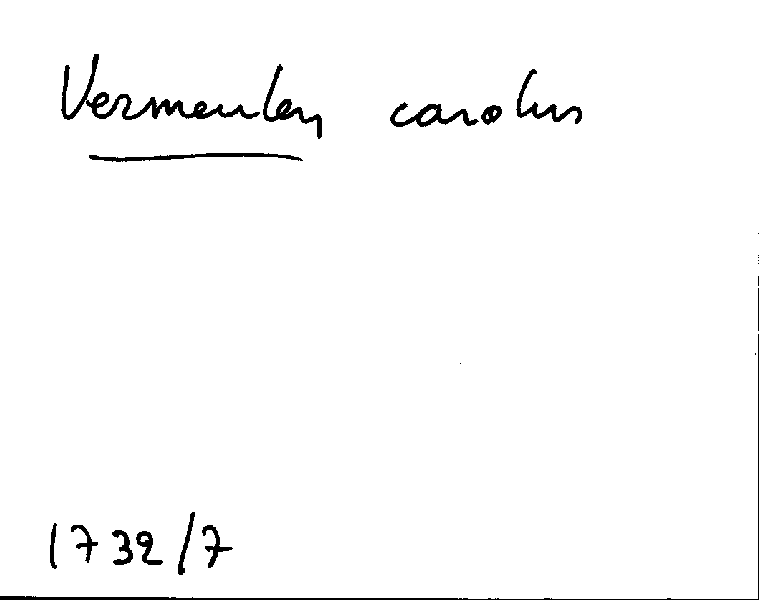 Vermeulen carolus
1732/7